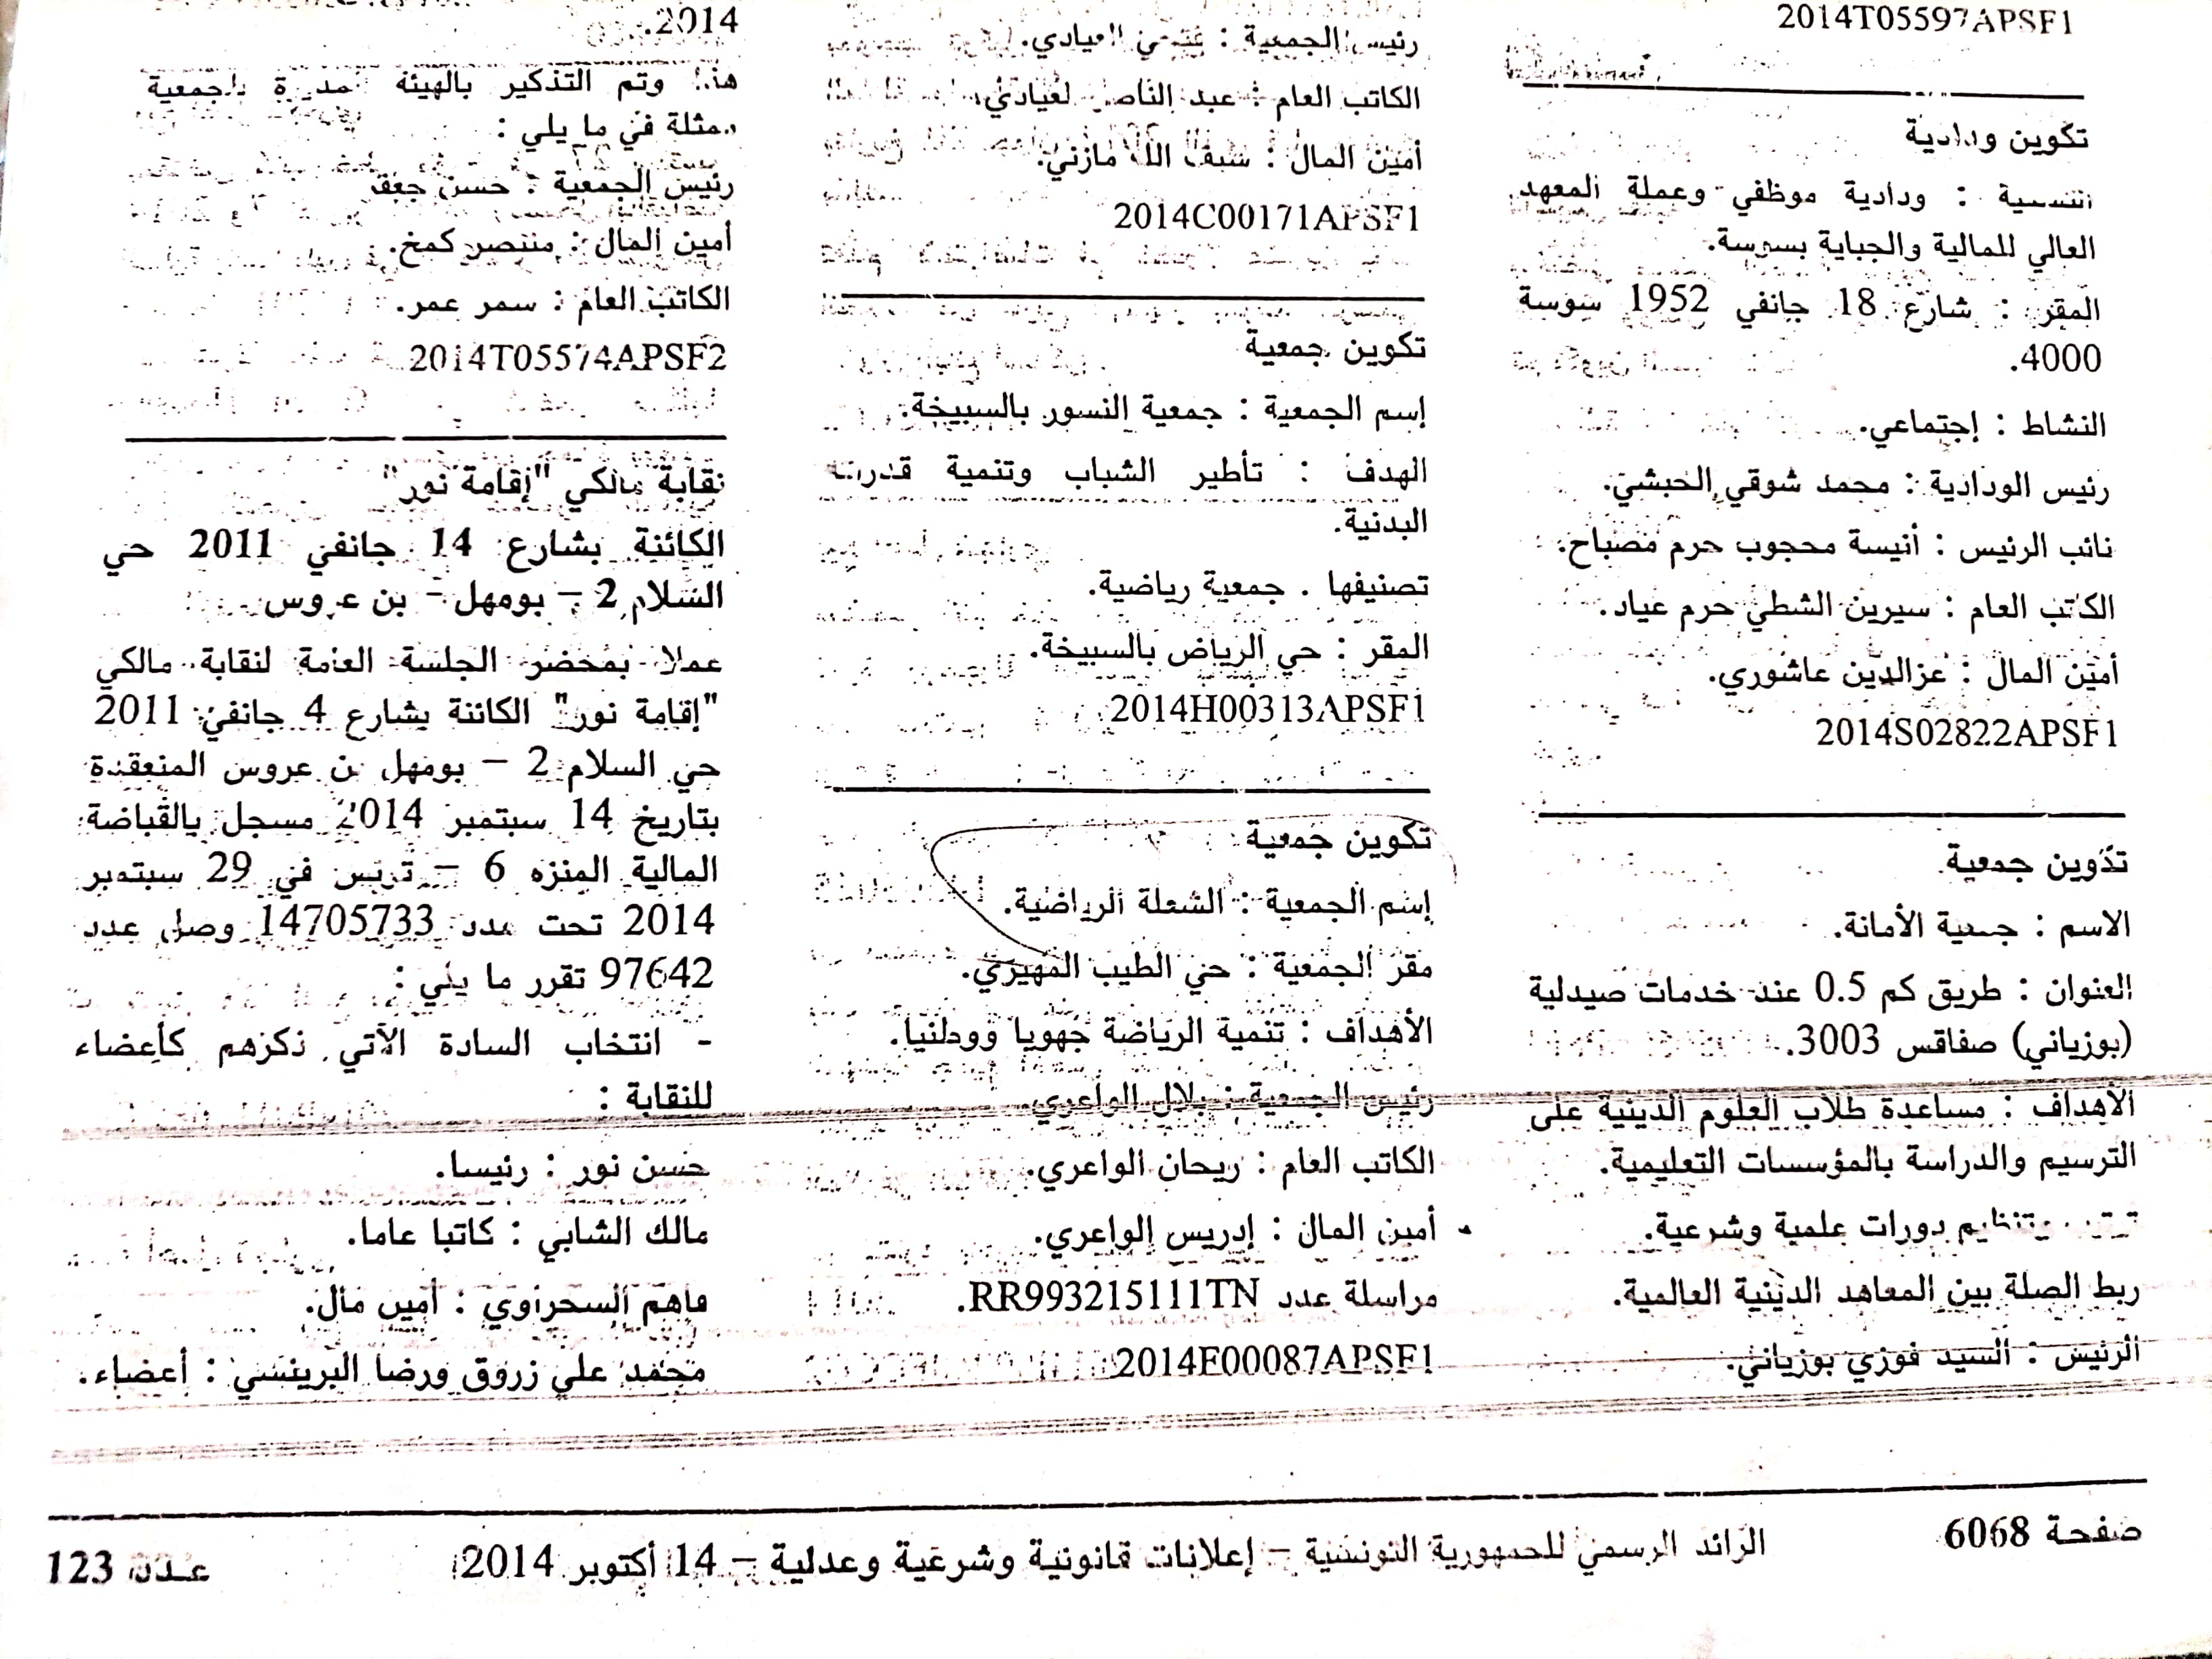 2014T05597APSF1
تكوين ودادية
التسمية : ودادية موظفي وعملة المعهد
العالي للمالية والجباية بسوسة.
المقر : شارع 18 جانفي 1952 سوسة
4000.
النشاط : إجتماعي.
رئيس الودادية : محمد شوقي الحبشي.
نائب الرئيس : أنيسة محجوب حرم مصباح.
الكاتب العام : سيرين الشطي حرم عياد.
أمين المال : عزالدين عاشوري.
2014S02822APSF1
تكوين جمعية
الاسم : جمعية الأمانة.
العنوان : طريق كم 0.5 عند خدمات صيدلية
(بوزياني) صفاقس 3003.
الأهداف : مساعدة طلاب العلوم الدينية على
الترسيم والدراسة بالمؤسسات التعليمية.
وتنظيم دورات علمية وشرعية.
ربط الصلة بين المعاهد الدينية العالمية.
الرئيس : السيد فوزي بوزياني.
رئيس الجمعية : فتحي العيادي.
الكاتب العام : عبد الناصر لعيادي.
أمين المال : سيف الله مازني.
2014C00171APSF1
تكوين جمعية
إسم الجمعية : جمعية النسور بالسبيخة.
الهدف : تأطير الشباب وتنمية قدراته
البدنية.
تصنيفها . جمعية رياضية.
المقر : حي الرياض بالسبيخة.
2014H00313APSF1
تكوين جمعية
إسم الجمعية : الشعلة الرياضية.
مقر الجمعية : حي الطيب المهيري.
الأهداف : تنمية الرياضة جهويا ووطنيا.
رئيس الجمعية : بلال الواعري.
الكاتب العام : ريحان الواعري.
أمين المال : إدريس الواعري.
مراسلة عدد RR993215111TN.
2014F00087APSF1
2014.
هذا وتم التذكير بالهيئة المديرة للجمعية
ممثلة في ما يلي :
رئيس الجمعية : حسن
أمين المال : منتصر كمخ.
الكاتب العام : سمر عمر.
2014T05574APSF2
نقابة مالكي "إقامة نور"
الكائنة بشارع 14 جانفي 2011 حي
السلام 2 – بومهل - بن عروس
عملا بمحضر الجلسة العامة لنقابة مالكي
"إقامة نور" الكائنة بشارع 4 جانفي 2011
حي السلام 2 – بومهل بن عروس المنعقدة
بتاريخ 14 سبتمبر 2014 مسجل بالقباضة
المالية المنزه 6 – تونس في 29 سبتمبر
2014 تحت عدد 14705733 وصل عدد
97642 تقرر ما يلي :
- انتخاب السادة الآتي ذكرهم كأعضاء
للنقابة :
حسن نور : رئيسا.
مالك الشابي : كاتبا عاما.
ماهم السحراوي : أمين مال.
محمد علي زروق ورضا البرينسي : أعضاء.
صفحة 6068 الرائد الرسمي للجمهورية التونسية – إعلانات قانونية وشرعية وعدلية – 14 أكتوبر 2014 عدد 123